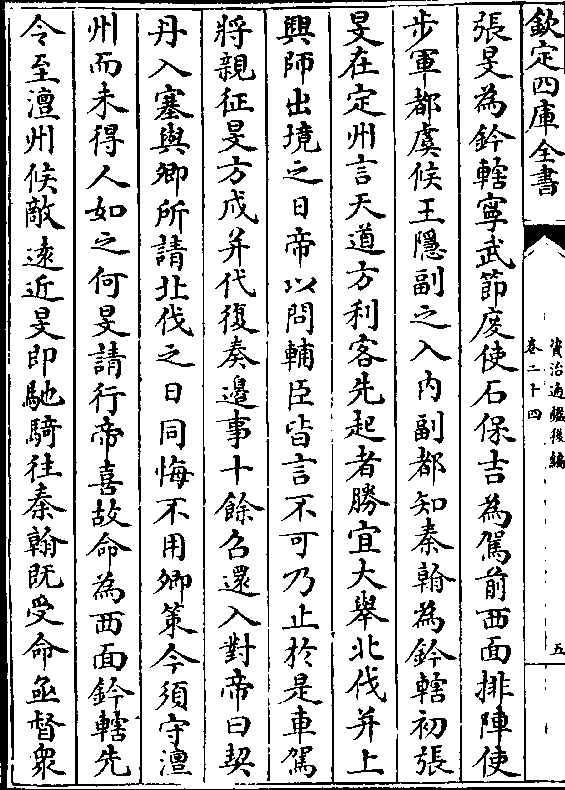 欽定四庫全書
資治通鑑後編
卷二十四
五
張旻為鈐轄寧武節度使石保吉為駕前西面排陣使
步軍都虞候王隱副之入內副都知秦翰為鈐轄初張
旻在定州言天道方利客先起者勝宜大舉北伐并上
興師出境之日帝以問輔臣皆言不可乃止於是車駕
將親征旻方戍并代復奏邊事十餘召還入對帝曰契
丹入塞與卿所請北伐之日同悔不用卿策今須守澶
州而未得人如之何旻請行帝喜故命為西面鈐轄先
令至澶州候敵遠近旻即馳騎往秦翰既受命亟督衆